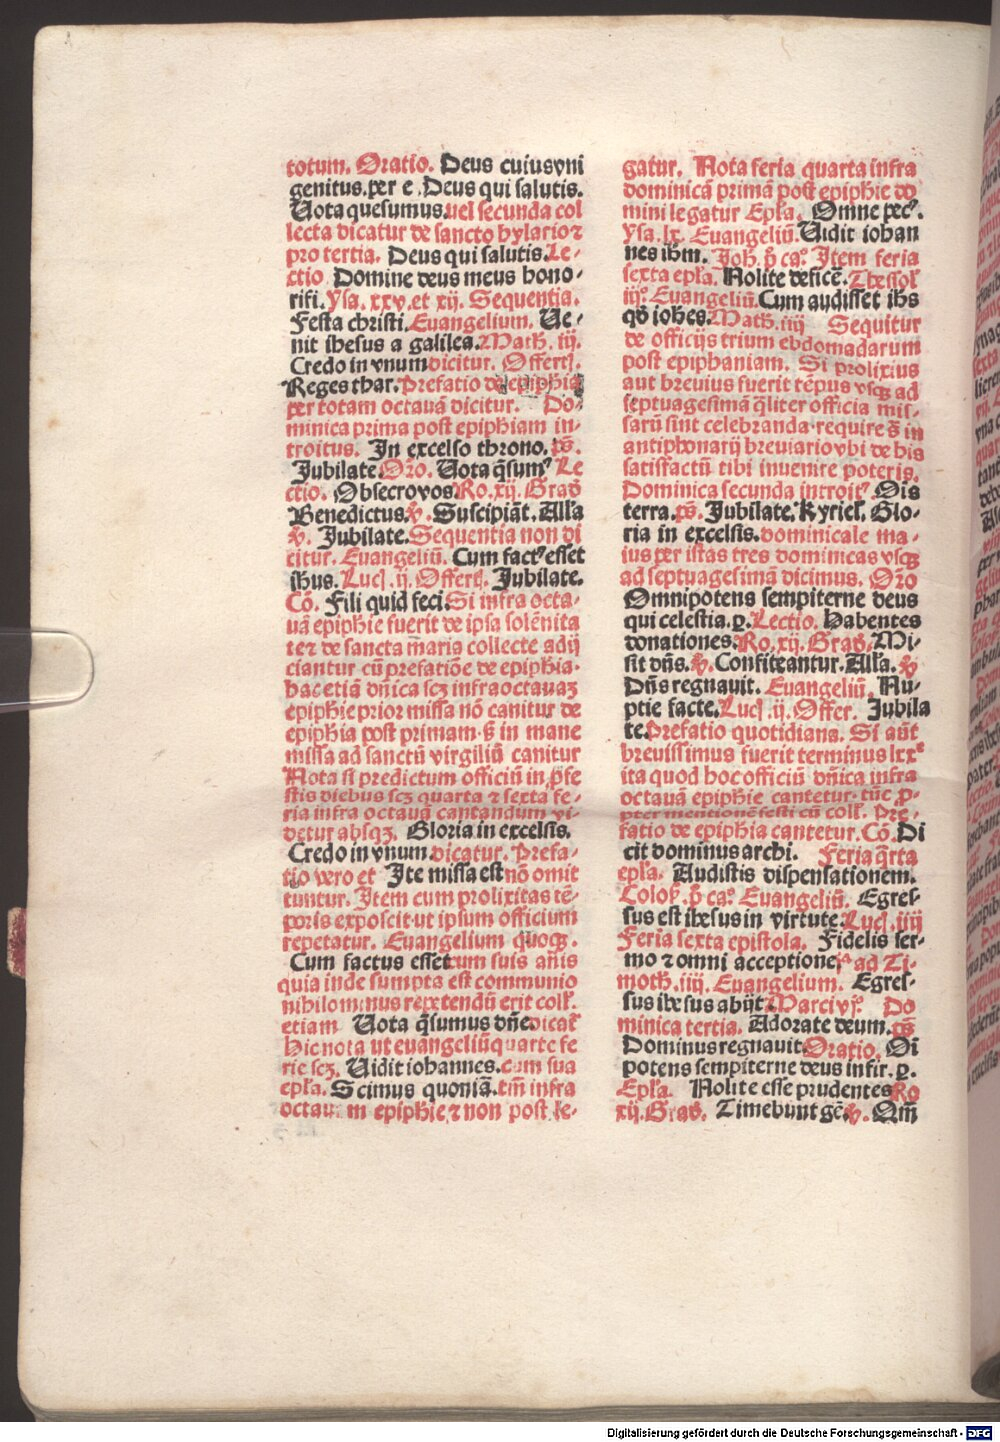 totum. Oratio. Deus cuius vni
genitus. per e. Deus qui salutis.
Uota quesumus. uel secunda col
lecta dicatur de sancto hylario ⁊
pro tertia. Deus qui salutis. Le-
ctio Domine deus meus hono-
rifi. Ysa. xxv. et xij. Sequentia.
Festa christi. Euangelium. Ue-
nit ihesus a galilea. Math. iij.
Credo in vnum dicitur. Offert.
Reges thar. Prefatio de epiphia
per totam octauā dicitur. Do-
minica prima post epiphiam in-
troitus. In excelso throno. ps̄.
Jubilate. Oro. Uota q̄sum⁹ Le
ctio. Obsecro vos. Ro. xij. Grad
Benedictus. ℣. Suscipiāt. Alla
℣. Jubilate. Sequentia non di
citur. Euangeliū. Cum fact⁹ esset
ihus. Luc. ij. Offert. Jubilate.
Cō. Fili quid feci. Si infra octa-
uā epiphie fuerit de ipsa solēnita
te ⁊ de sancta maria collecte adij
ciantur cū prefatiōe de epiphia.
hac etiā dn̄ica scꝫ infra octauaꝫ
epiphie prior missa nō canitur de
epiphia post primam. ꝫ in mane
missa ad sanctū virgiliū canitur
Nota si predictum officiū in ꝓfe
stis diebus scꝫ quarta ⁊ sexta fe-
ria infra octauā cantandum vi-
detur absqꝫ. Gloria in excelsis.
Credo in vnum. dicatur. Prefa-
tio vero et Ite missa est nō omit
tuntur. Item cum prolixitas tē-
poris exposcit ut ipsum officium
repetatur. Euangelium quoqꝫ.
Cum factus esset cum suis an̄is
quia inde sumpta est communio
nihilominus repetendū erit coll.
etiam Uota q̄sumus dn̄e dicat
Hic nota ut euangeliū quarte fe
rie scꝫ. Uidit iohannes. cum sua
epl̄a. Scimus quoniā. tm̄ infra
octauam epiphie ⁊ non post le-
gatur. Nota feria quarta infra
dominicā primā post epiphie do
mini legatur Epl̄a. Omne pec.
Ysa. lx. Euangeliū. Uidit iohan
nes ihm. Joh. p̄ ca⁰. Item feria
sexta epl̄a. Nolite deficē. Thessol
iij. Euangeliū. Cum audisset ihs
qd iohes. Math. iiij Sequitur
de officijs trium ebdomadarum
post epiphaniam. Si prolixius
aut breuius fuerit tēpus vsqꝫ ad
septuagesimā q̄liter officia mis-
sarū sint celebranda require ꝫ in
antiphonarij breuiario vbi de his
satisfactū tibi inuenire poteris.
Dominica secunda introit⁹ Ois
terra. ps̄. Jubilate. Kyriel. Glo-
ria in excelsis. dominicale ma-
ius per istas tres dominicas vsqꝫ
ad septuagesimā dicimus. Oro
Omnipotens sempiterne deus
qui celestia. ꝑ. Lectio. Habentes
donationes. Ro. xij. Grad. Mi-
sit dn̄s. ℣. Confiteantur. Alla. ℣
Dn̄s regnauit. Euangeliū. Nu-
ptie facte. Luc. ij. Offer. Jubila
te. Prefatio quotidiana. Si aūt
breuissimus fuerit terminus lxxᵉ
ita quod hoc officiū dn̄ica infra
octauā epiphie cantetur. tūc ꝓ-
pter mentionē festi cū coll. Pre-
fatio de epiphia cantetur. Cō. Di
cit dominus archi. Feria q̄rta
epl̄a. Audistis dispensationem.
Colos. p̄ ca⁰. Euangeliū. Egres-
sus est ihesus in virtute. Luc. iiij
Feria sexta epistola. Fidelis ser-
mo ⁊ omni acceptione. jᵃ ad Ti-
moth. iiij. Euangelium. Egres-
sus ihesus abijt. Marci vj. Do
minica tertia. Adorate deum. ps̄
Dominus regnauit. Oratio. Oī
potens sempiterne deus infir. ꝑ.
Epl̄a. Nolite esse prudentes Ro
xij. Grad. Timebunt gē. ℣. Qm̄
Digitalisierung gefördert durch die Deutsche Forschungsgemeinschaft - DFG